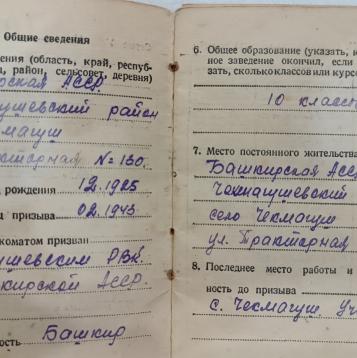 Общие сведения
ения (область, край, респуб-
, район, сельсовет, деревня)
рская АССР.
ушевский район
макуш
кторная N=130.
рождения 12.1925
призыва 02.1943
коматом призван
ушевским РВК.
кирской АССР.
ность Башкир
6. Общее образование (указать, к
ное заведение окончил, если
зать, сколько классов или курсо
10 класс
7. Место постоянного жительства
Башкирская Асс
Чекмагушевский
село Чекмагуш
ул. Тракторная
8. Последнее место работы и
ность до призыва
с. Чекмагуш Уч